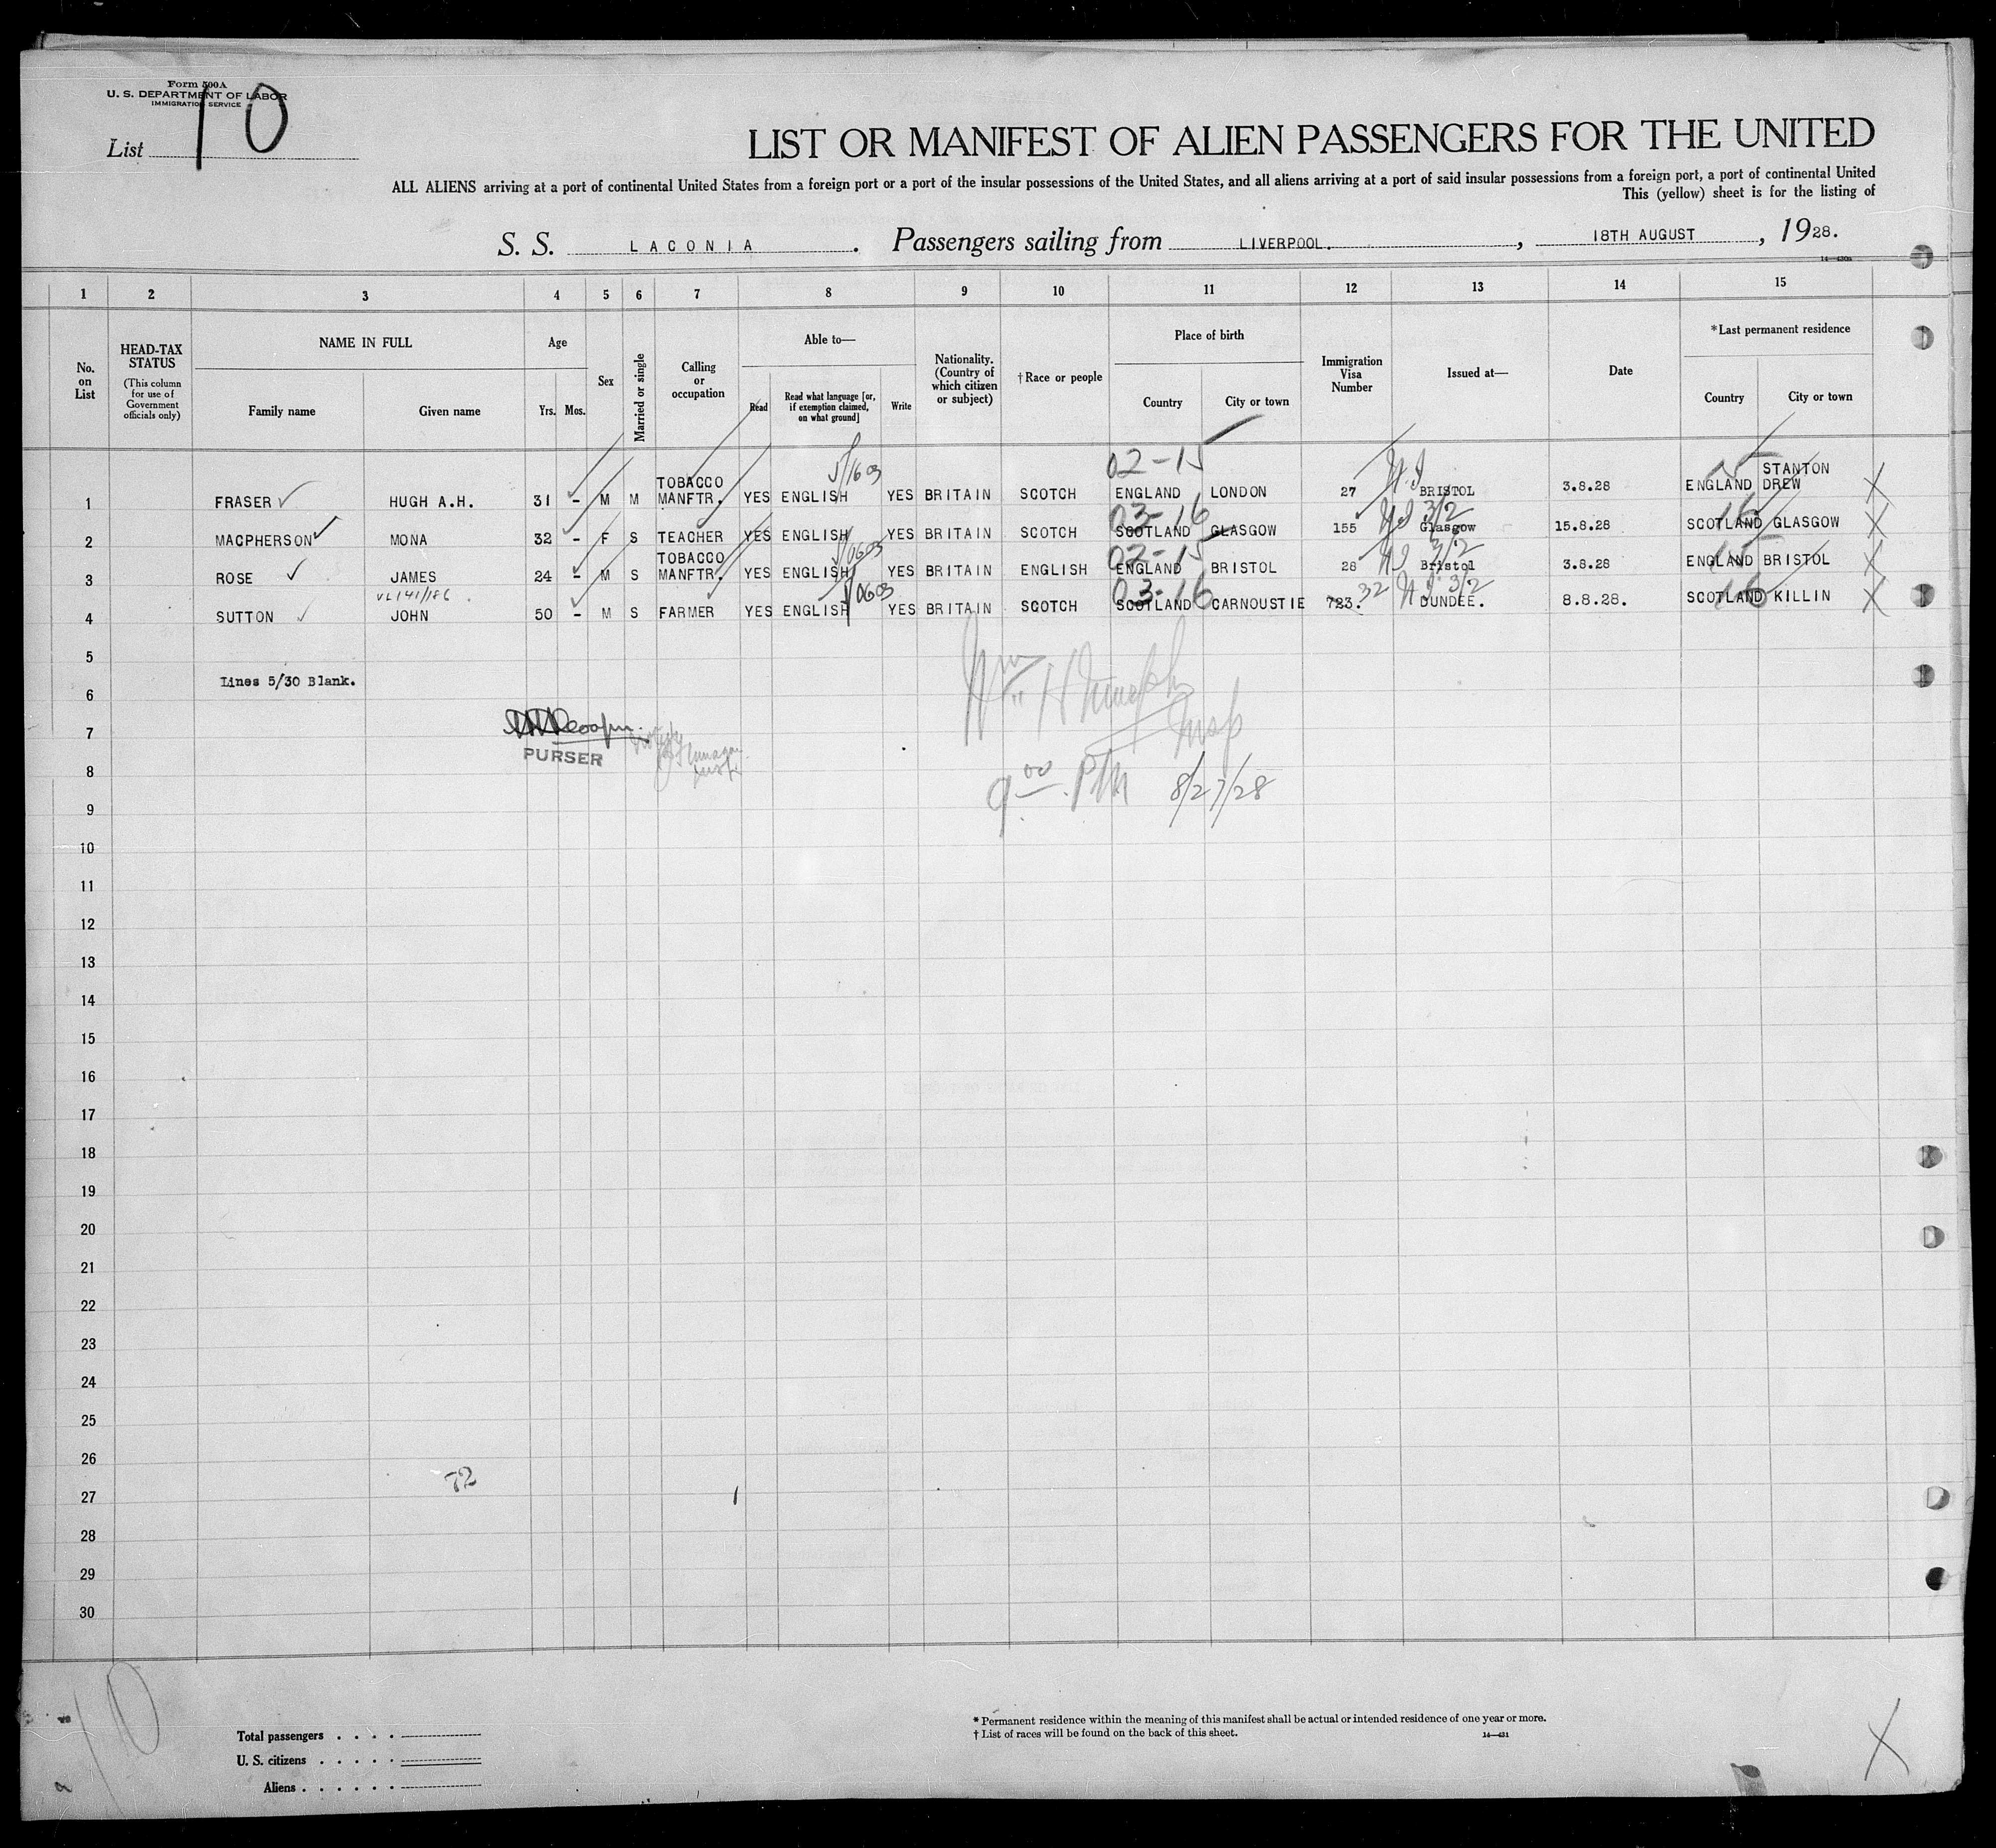 Form 500A
U. S. DEPARTMENT OF LABOR
IMMIGRATION SERVICE
List 10
LIST OR MANIFEST OF ALIEN PASSENGERS FOR THE UNITED
ALL ALIENS arriving at a port of continental United States from a foreign port or a port of the insular possessions of the United States, and all aliens arriving at a port of said insular possessions from a foreign port, a port of continental United
This (yellow) sheet is for the listing of
S. S. LACONIA. Passengers sailing from LIVERPOOL., 18TH AUGUST, 1928.
1 2 3 4 5 6 7 8 9 10 11 12 13 14 15
No. on List
HEAD-TAX STATUS
(This column for use of Government officials only)
NAME IN FULL
Family name Given name
Age
Yrs. Mos.
Sex
Married or single
Calling or occupation
Able to—
Read
Read what language [or, if exemption claimed, on what ground]
Write
Nationality. (Country of which citizen or subject)
†Race or people
Place of birth
Country City or town
Immigration Visa Number
Issued at—
Date
*Last permanent residence
Country City or town
02-15
1 FRASER HUGH A.H. 31 - M M TOBACCO MANFTR. YES ENGLISH YES BRITAIN SCOTCH ENGLAND LONDON 27 BRISTOL 3.8.28 ENGLAND STANTON DREW X
03-16 3/2
2 MACPHERSON MONA 32 - F S TEACHER YES ENGLISH YES BRITAIN SCOTCH SCOTLAND GLASGOW 155 Glasgow 15.8.28 SCOTLAND GLASGOW X
02-15 3/2
3 ROSE JAMES 24 - M S TOBACCO MANFTR. YES ENGLISH YES BRITAIN ENGLISH ENGLAND BRISTOL 28 Bristol 3.8.28 ENGLAND BRISTOL X
VL141/186 0603 03-16 32 3/2
4 SUTTON JOHN 50 - M S FARMER YES ENGLISH YES BRITAIN SCOTCH SCOTLAND CARNOUSTIE 723. DUNDEE. 8.8.28. SCOTLAND KILLIN X
5
Lines 5/30 Blank.
6
7
PURSER
Wm H Murphy
Insp
8
9 00 PM 8/27/28
9
10
11
12
13
14
15
16
17
18
19
20
21
22
23
24
25
26
72
27
28
29
30
10
Total passengers
U. S. citizens
Aliens
* Permanent residence within the meaning of this manifest shall be actual or intended residence of one year or more.
† List of races will be found on the back of this sheet.
14—431
X